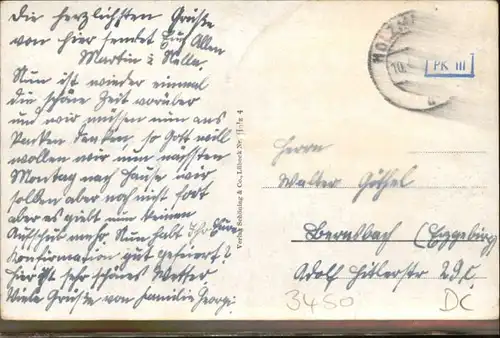 Die herzlichsten Grüße
von hier sendet Euch Allen
Martin u. Nelle.
Nun ist wieder einmal
die schöne Zeit vorüber
und wir müssen nun ans
Packen denken, so Gott will
wollen wir nun nächsten
Montag nach Hause wir
sollen aber noch nicht fort
aber es giebt nun keinen
Aufschub mehr. Nun habt Ihr
Konfirmation gut gefeiert?
hier ist sehr schönes Wetter
Viele Grüße von Familie Georgi.
Verlag Schöning & Co., Lübeck
PK III
10.
Herrn
Walter Göthel
Bernsbach (Erzgebirg
Adolf Hitlerstr
3450 DC